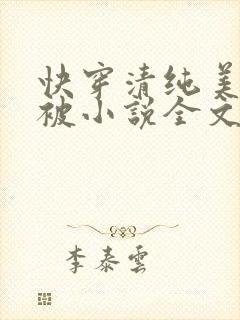 快穿清纯美
被小説全文
李泰雲